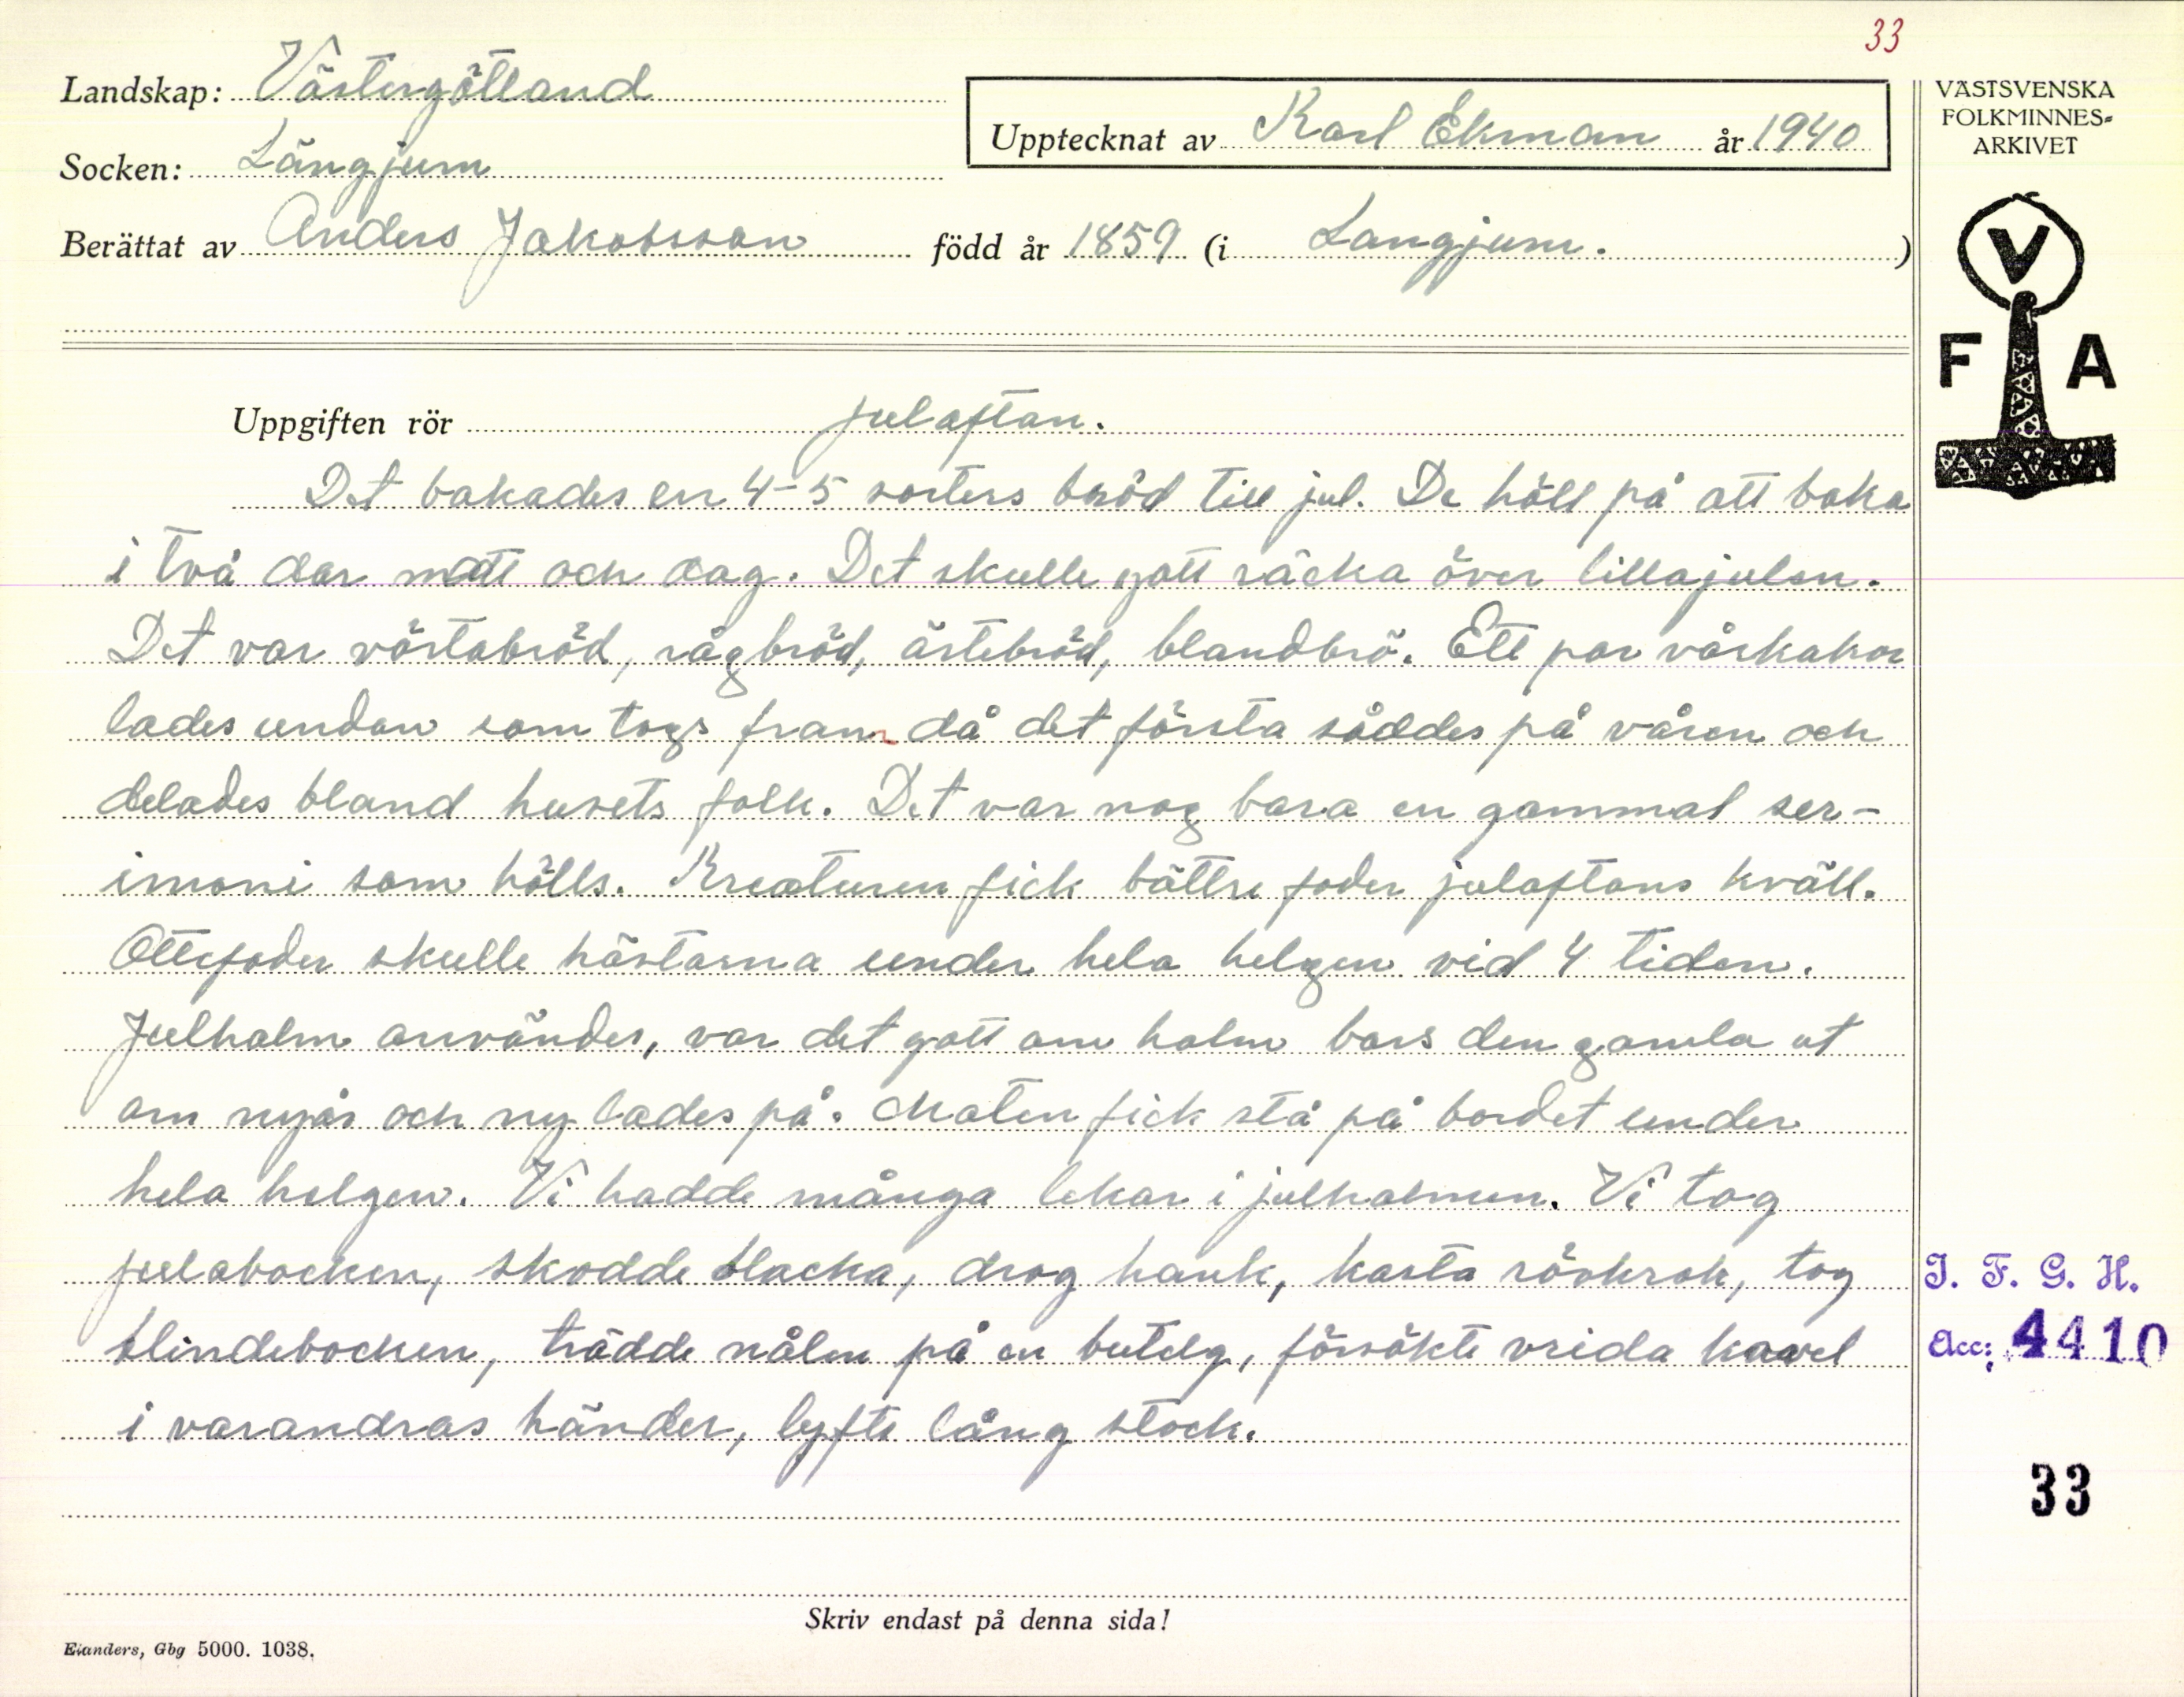 33
Landskap: Västergötland
Upptecknat av Karl Ekman år 1940
VÄSTSVENSKA
FOLKMINNES=
ARKIVET
Socken: Längjum
Berättat av Anders Jakobsson född år 1859 (i Längjum. )
V
F A
Uppgiften rör julaftan.
Det bakades en 4-5 sorters bröd till jul. De höll på att baka
i två dar natt och dag. Det skulle gott räcka över lillajulen.
Det var vörtabröd, rågbröd, ärtebröd, blandbrö. Ett par vårkakor
lades undan som togs fram då det första såddes på våren och
delades bland husets folk. Det var nog bara en gammal ser-
imoni som hölls. Kreaturen fick bättre foder julaftans kväll.
Ottefoder skulle hästarna under hela helgen vid 4 tiden.
Julhalm användes, var det gott om halm bars den gamla ut
om nyår och ny lades på. Maten fick stå på bordet under
hela helgen. Vi hadde många lekar i julhalmen. Vi tog
julabocken, skodde blacka, drog hank, kasta rövkrok, tog
blindebocken, trädde nålen på en butelg, försökte vrida kavel
i varandras händer, lyfte lång stock.
I. F. G. H.
Acc: 4410
33
Skriv endast på denna sida!
Elanders, Gbg 5000. 1038.